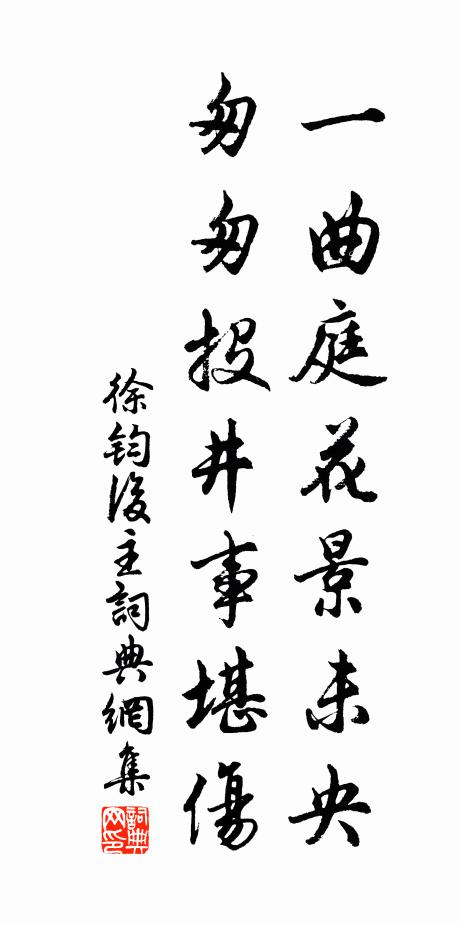 一曲庭花景未央
匆匆投井事堪傷
徐鈞後主詞典網集
詞典网印